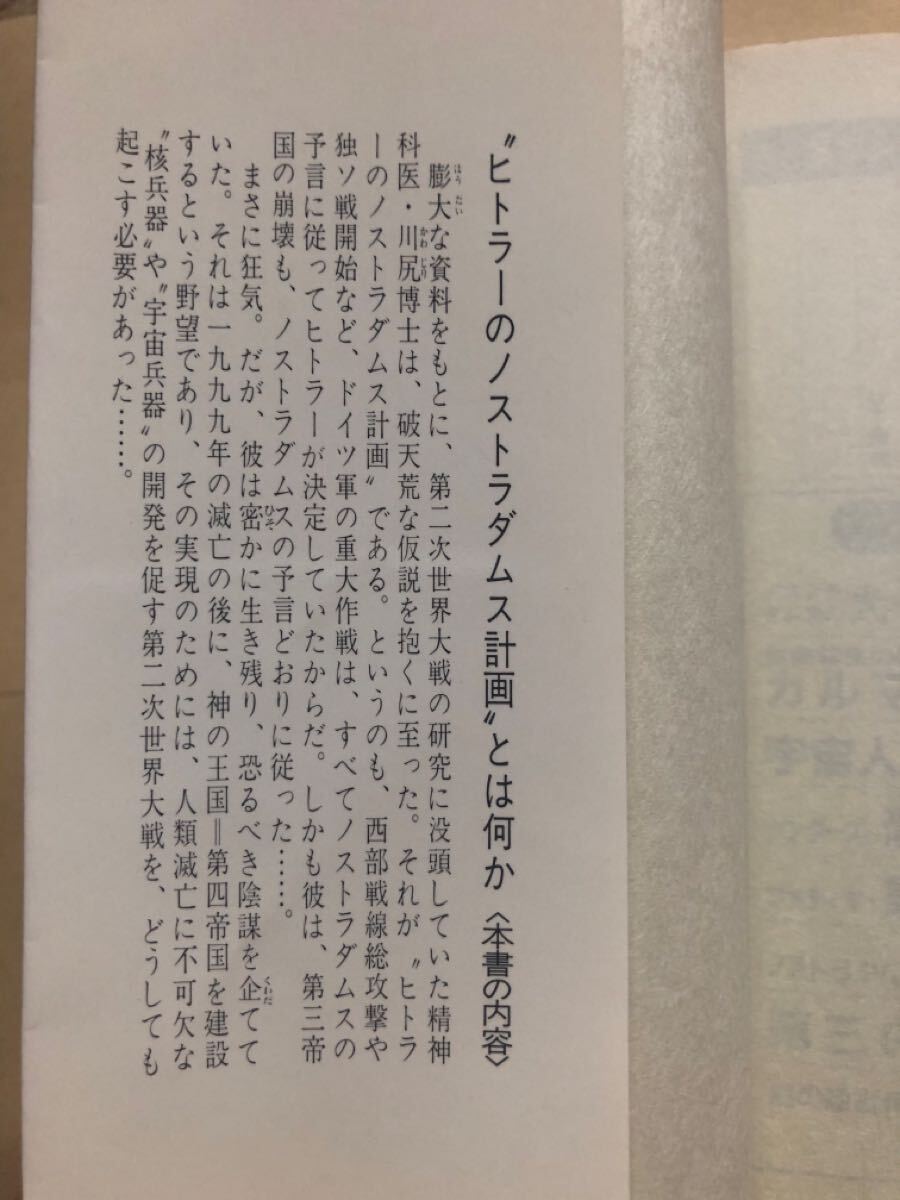 〝ヒトラーのノストラダムス計画〟とは何か〈本書の内容〉
膨大な資料をもとに、第二次世界大戦の研究に没頭していた精神
科医・川尻博士は、破天荒な仮説を抱くに至った。それが〝ヒトラ
ーのノストラダムス計画〟である。というのも、西部戦線総攻撃や
独ソ戦開始など、ドイツ軍の重大作戦は、すべてノストラダムスの
予言に従ってヒトラーが決定していたからだ。しかも彼は、第三帝
国の崩壊も、ノストラダムスの予言どおりに従った……。
まさに狂気。だが、彼は密かに生き残り、恐るべき陰謀を企てて
いた。それは一九九九年の滅亡の後に、神の王国＝第四帝国を建設
するという野望であり、その実現のためには、人類滅亡に不可欠な
〝核兵器〟や〝宇宙兵器〟の開発を促す第二次世界大戦を、どうしても
起こす必要があった……。